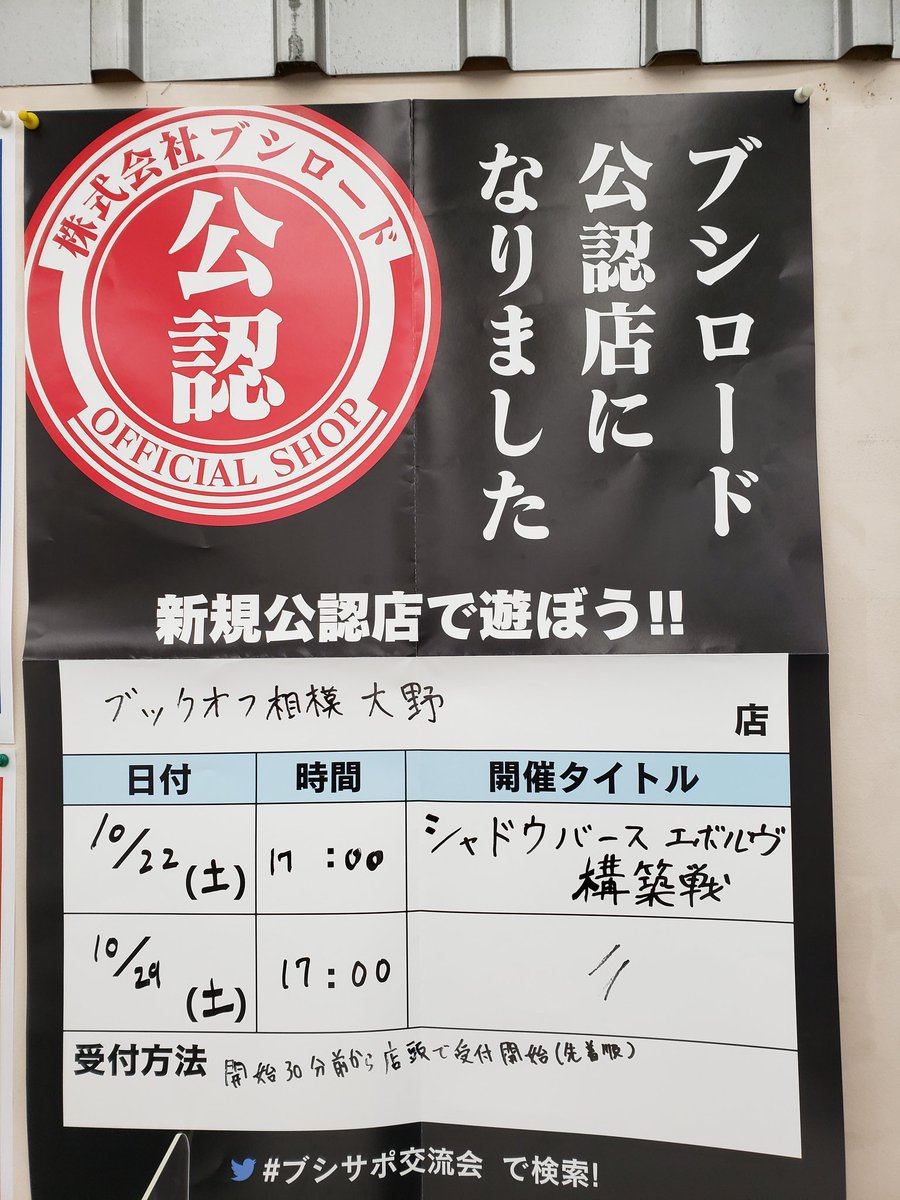 株式会社ブシロード
公認
OFFICIAL SHOP
ブシロード
公認店に
なりました
新規公認店で遊ぼう!!
ブックオフ相模大野 店
日付 時間 開催タイトル
10/22(土) 17:00 シャドウバース エボルヴ
構築戦
10/29(土) 17:00 〃
受付方法 開始30分前から店頭で受付開始(先着順)
#ブシサポ交流会 で検索!